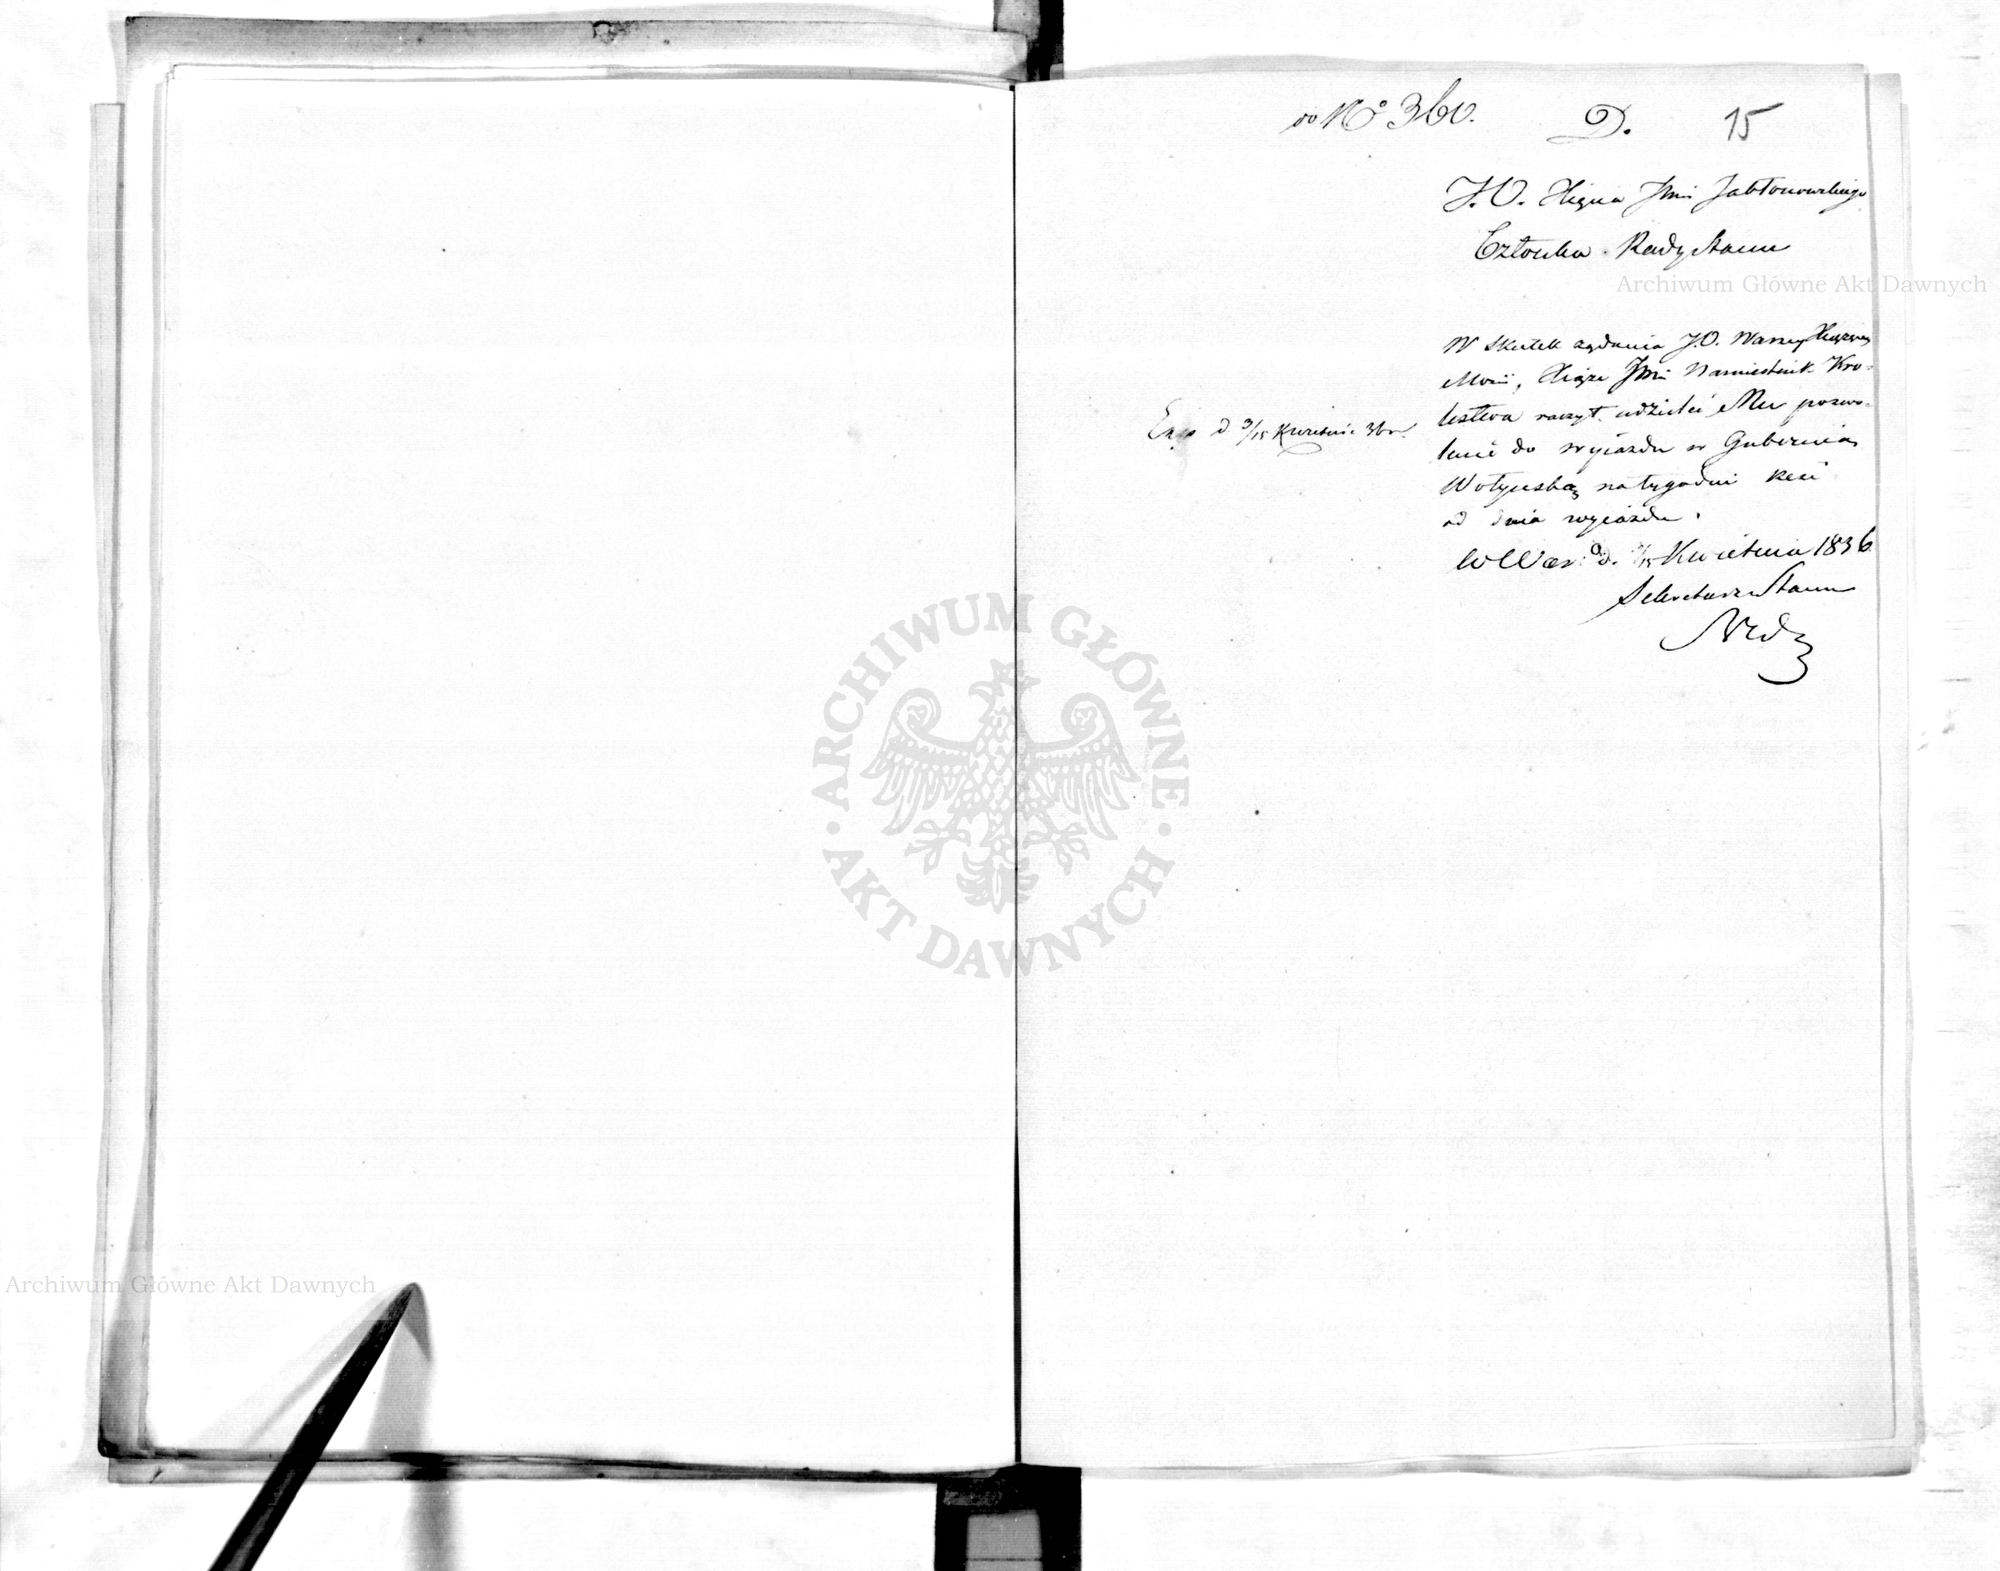 do No 360. D. 15
J.O. Xięcia Jmci Jabłonowskiego
Członka Rady Stanu
Archiwum Główne Akt Dawnych
W skutek żądania J.O. Waszey Xiążęcey
Mości, Xiąże Jmć Namiestnik Kró-
lestwa raczył udzielić Mu pozwo-
Exp d 3/15 Kwietnia 36 r.
lenie do wyjazdu w Gubernią
Wołyńską na tygodni
od dnia wyjazdu.
w War: d. 3/15 Kwietnia 1836
Sekretarz Stanu
ARCHIWUM GŁÓWNE
AKT DAWNYCH
Archiwum Główne Akt Dawnych